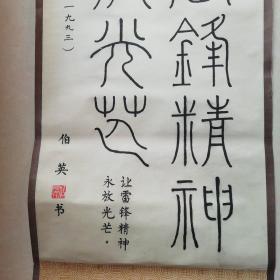 锋精神
放光芒
让雷锋精神
永放光芒。
一九九三）
伯英
书